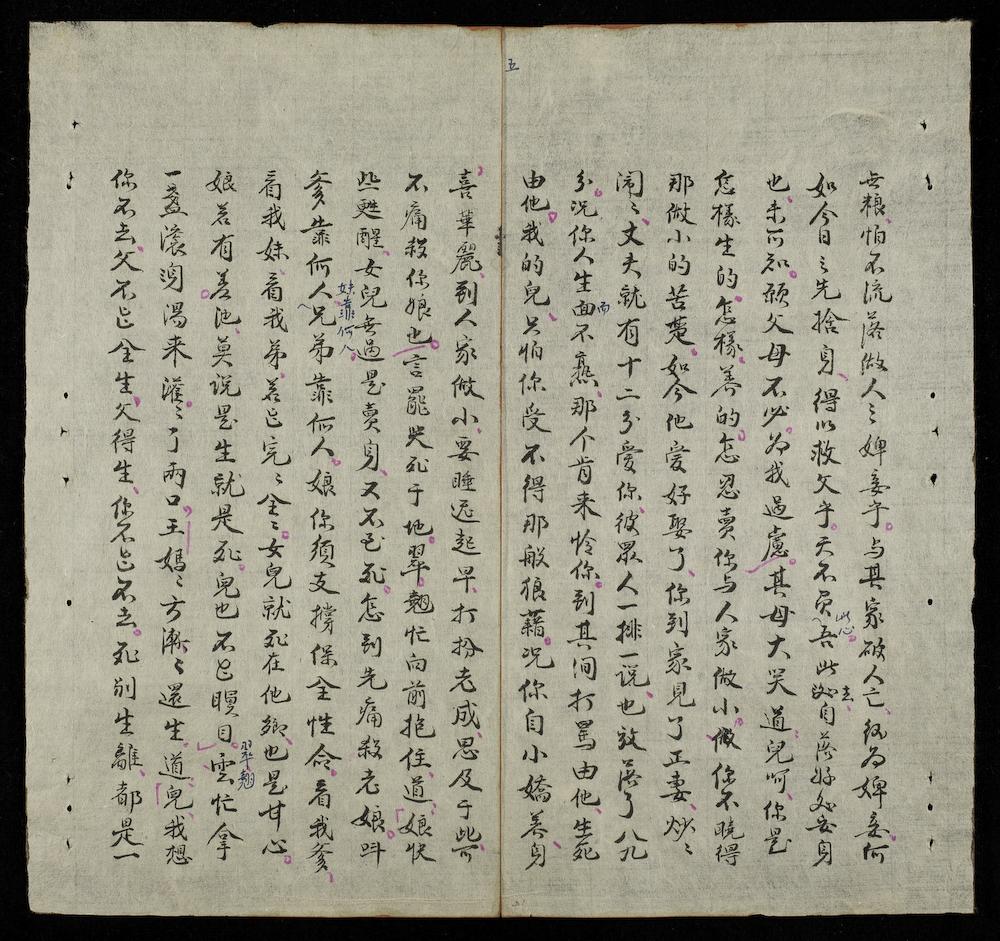 五
無粮、怕不流落做人之婢妾乎。与其家破人亡、終為婢妾、何
如今日之先捨身、得以救父乎。天不負吾此心此去自落好处安身
也、未可知。願父母不必為我過慮。其母大哭道、兒呵、你是
怎様生的、怎様養的、怎忍賣你与人家做小。做你不曉得
那做小的苦楚、如今他愛好娶了、你到家見了正妻、炒々
鬧々、丈夫就有十二分愛你、彼眾人一排一說、也放落了八九
分。况你人生面而不熟、那个肯来怜你、到其间打罵由他、生死
由他。我的兒、只怕你受不得那般狼藉。况你自小嬌養、身
喜華麗、到人家做小、要睡迟起早、打扮老成、思及于此、可
不痛殺你娘也。言罷哭死于地。翠翹忙向前抱住道、娘快
些甦醒、女兒無過是賣身、又不是死、怎到先痛殺老娘。呌
爹靠何人、妹靠何人、兄弟靠何人。娘你須支撐保全性命、看我爹、
看我妹、看我弟、若得完々全々、女兒就死在他鄉、也是甘心。
娘若有差池、莫說是生就是死、兒也不得瞑目。翠雲忙拿
一盞滾湯来灌々了兩口、王媽々方漸々還生。道、兒、我想
你不去、父不得全生、父得生、你不得不去。死别生離、都是一